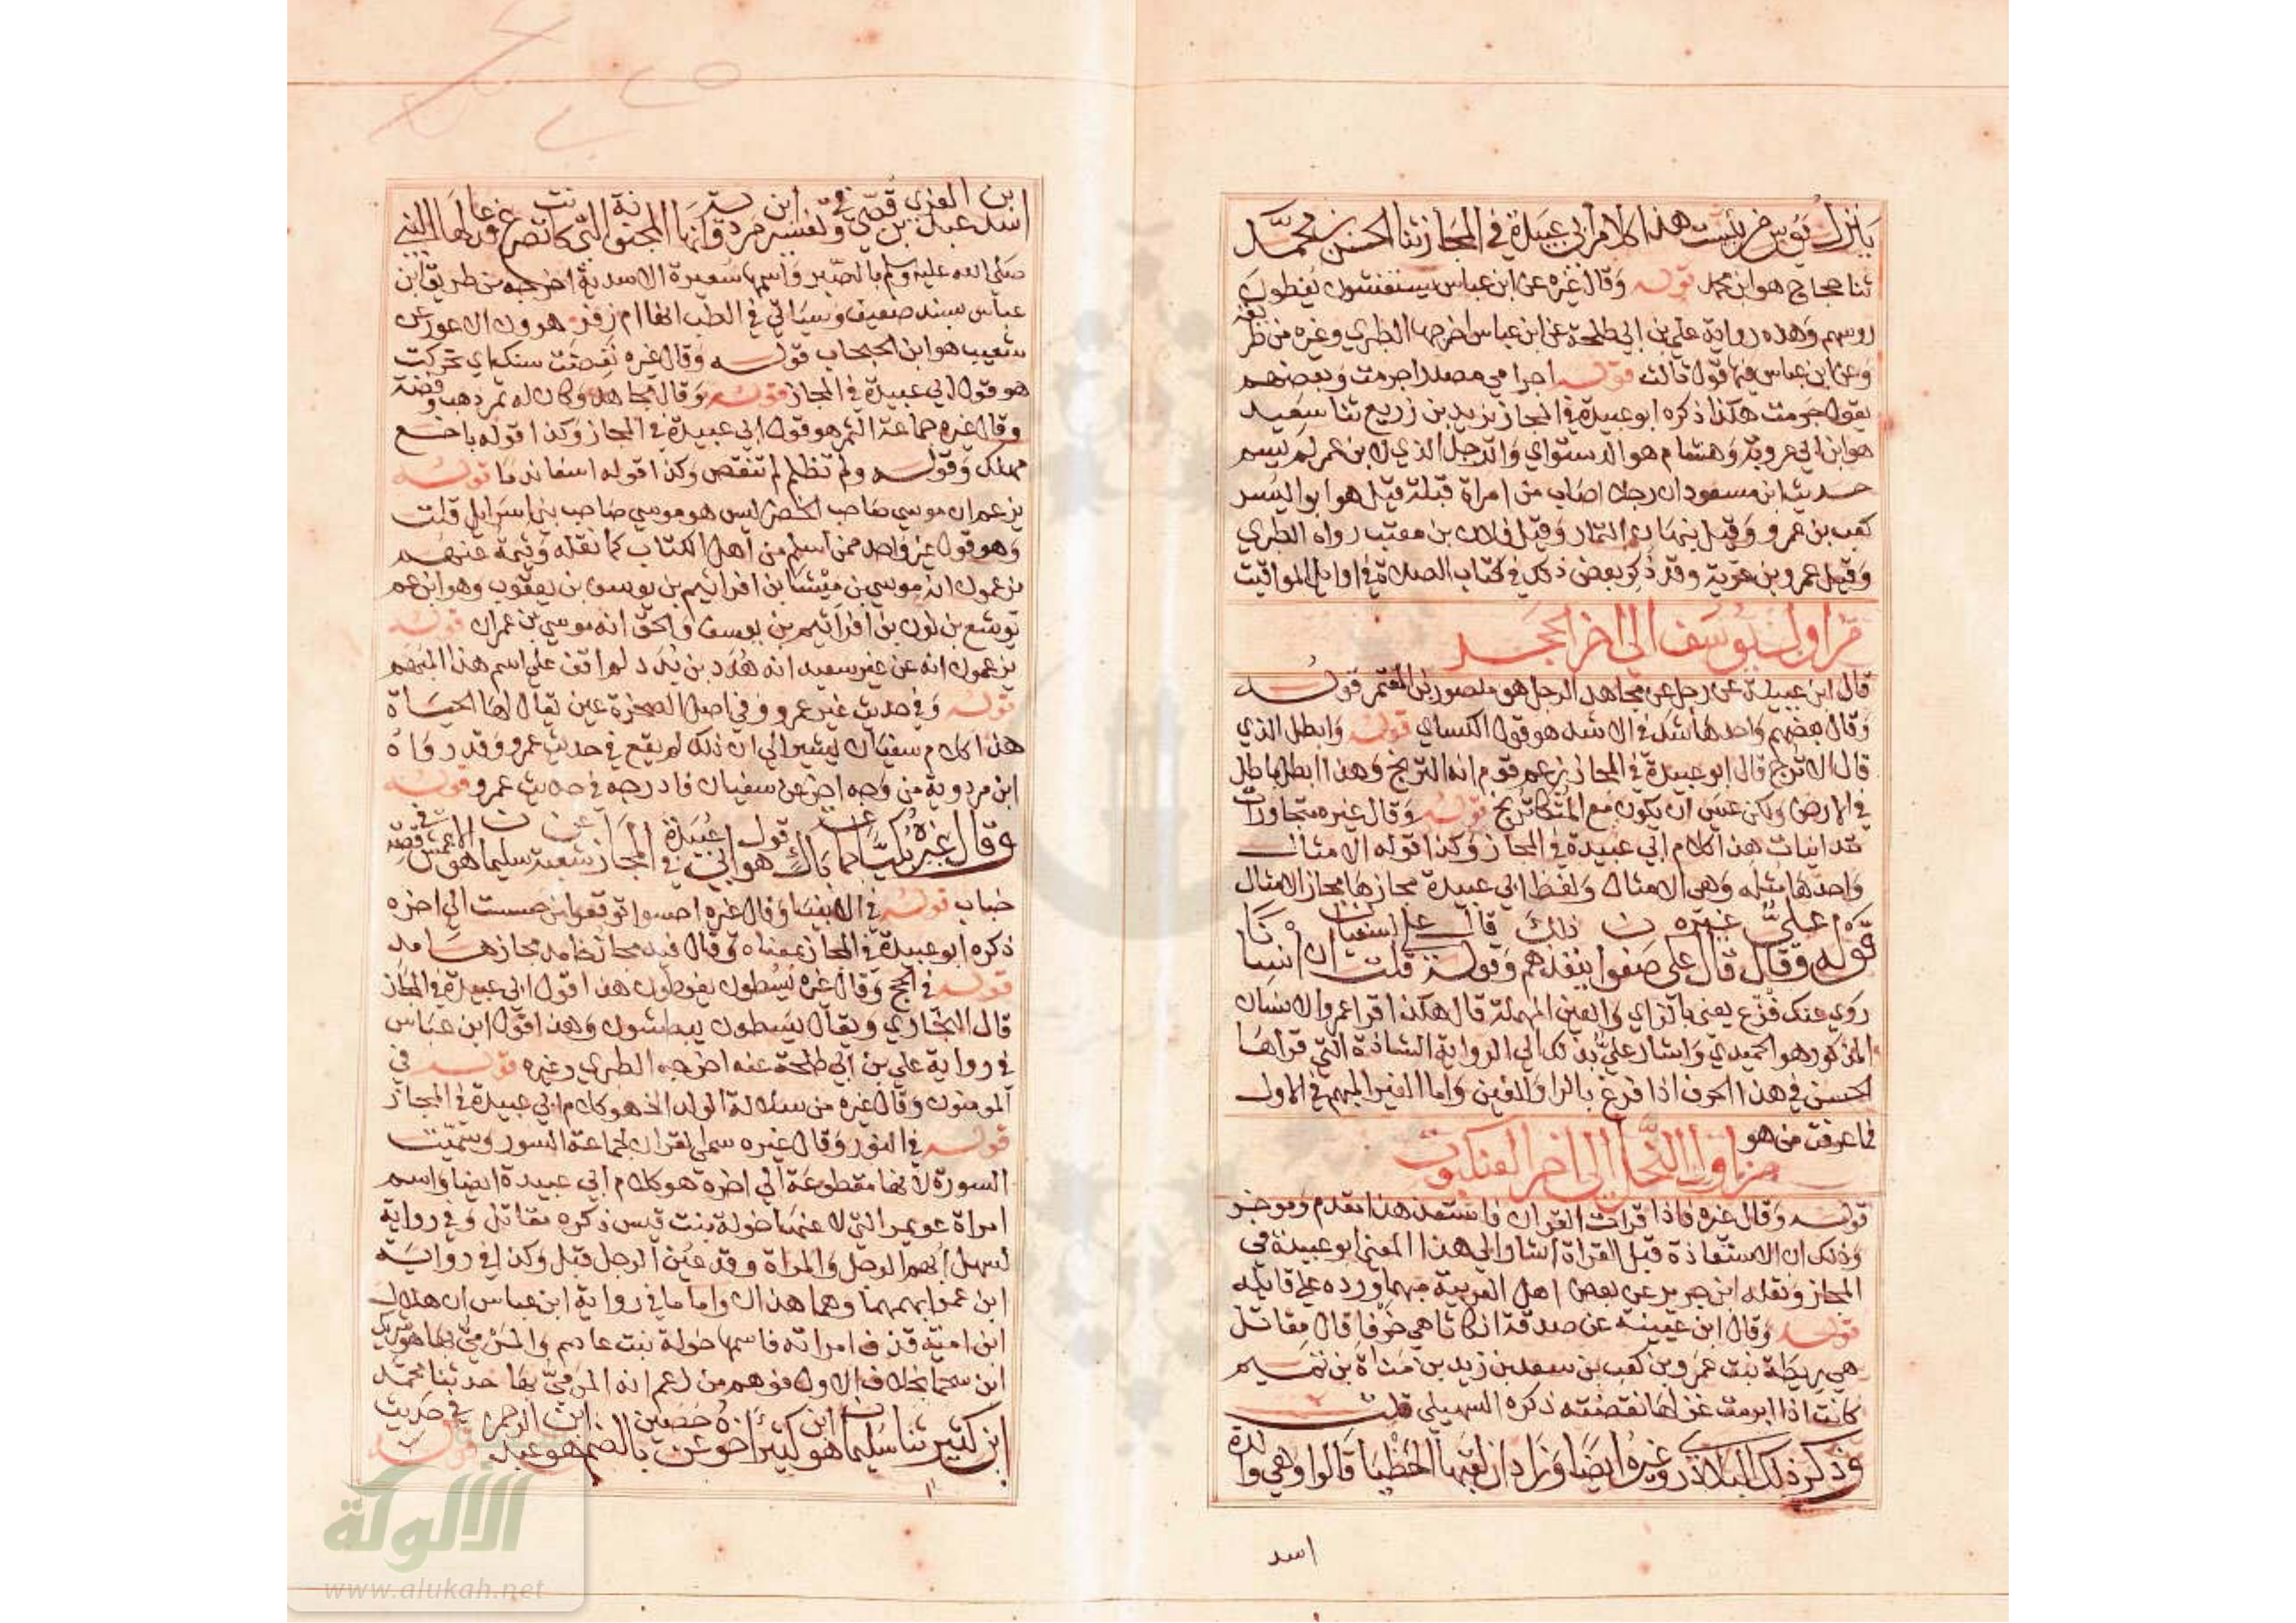 ثنا حجاج هو ابن محمد قوله وقال غيره عن ابن عباس يستغشون يغطون
روسهم وهذه رواية علي بن ابي طلحة عن ابن عباس اخرجها الطبري وغيره من طر
وعن ابن عباس قوله اجرامي مصدر اجرمت وبعضهم
يقول جرمت هكذا ذكره ابو عبيدة في المجاز يزيد بن زريع ثنا سعيد
هو ابن ابي عروبة وهشام هو الدستواي والرجل الذي لابن عمر لم يسم
حديث ابن مسعود ان رجلا اصاب من امراة قبلة قيل هو ابو اليسر
كعب بن عمرو وقيل نبهان التمار وقيل فلان بن معتب رواه الطبري
وقيل عمرو بن غزية وقد ذكر بعض ذلك في كتاب الصلاة في اوايل المواقيت
من اول يوسف الى اخر الحجر
قال ابن عيينة عن رجل عن مجاهد الرجل هو منصور بن المعتمر قوله
وقال بعضهم واحدها شد في الاشد هو قول الكساي قوله وابطل الذي
قال الاترج قال ابو عبيدة في المجاز يزعم قوم انه الترنج وهذا ابطل باطل
في الارض ولكن عسى ان يكون مع المتكا ترنج قوله وقال غيره متجاورات
متدانيات هذا كلام ابي عبيدة في المجاز وكذا قوله الامثال
واحدها مثله وهي الامثال ولفظ ابي عبيدة مجازها مجاز الامثال
روي عنك فزع يعني بالزاي والعين المهملة قال هكذا قرا عمرو الانسان
المذكور هو الحميدي واشار علي بذلك الى الرواية الشاذة التي قراها
الحسن في هذا الحرف اذا فرغ بالرا والغين واما الغير المبهم في الاول
فما عرفت من هو
من اول النحل الى اخر العنكبوت
قوله وقال غيره فاذا قرات القران فاستعذ هذا مقدم وموخر
وذلك ان الاستعاذة قبل القراة اشار الى هذا المعنى ابو عبيدة في
المجاز ونقله ابن جرير عن بعض اهل العربية مبهما ورده على قايله
قوله وقال ابن عيينة عن صدقة انكاثا هي خرقا قال مقاتل
هي ريطة بنت عمرو بن كعب بن سعد بن زيد بن مناة بن تميم
كانت اذا ابرمت غزلها نقضته ذكره السهيلي قلت
وذكر ذلك البلاذري وغيره ايضا وزاد ان لقبها الحظيا قالوا وهي والدة
اسد
صلى الله عليه وسلم بالصبر واسمها سعيرة الاسدية اخرجه من طريق ابن
عباس بسند ضعيف وسياتي في الطب انها ام زفر هرون الاعور عن
شعيب هو ابن الحبحاب قوله وقال غيره نغضت سنك اي تحركت
هو قول ابي عبيدة في المجاز قوله وقال مجاهد وكان له ثمر ذهب وفضة
وقال غيره جماعة الثمر هو قول ابي عبيدة في المجاز وكذا قوله باخع
مهلك وقوله ولم تظلم لم تنقص وكذا قوله اسفا ندما قوله
يزعم ان موسى صاحب الخضر ليس هو موسى صاحب بني اسرايل قلت
وهو قول غير واحد ممن اسلم من اهل الكتاب كما نقله وثيمة عنهم
يزعمون انه موسى بن ميشا بن افراثيم بن يوسف بن يعقوب وهو ابن عم
يوشع بن نون بن افراثيم بن يوسف والحق انه موسى بن عمران قوله
يزعمون انه عن غير سعيد انه هدد بن بدد لم اقف على اسم هذا المبهم
قوله وفي حديث غير عمرو وفي اصل الصخرة عين يقال لها الحياة
هذا كلام سفيان يشير الى ان ذلك لم يقع في حديث عمرو وقد رواه
ابن مردوية من وجه اخر عن سفيان فادرجه في حديث عمرو قوله
خباب قوله في الانبيا وقال غيره احسوا توقعوا من حسست الى اخره
ذكره ابو عبيدة في المجاز بمعناه وقال فيه مجاز خامد مجازها مد
قوله في الحج وقال غيره يسطون يفرطون هذا قول ابي عبيدة في المجاز
قال البخاري ويقال يسطون يبطشون وهذا قول ابن عباس
في رواية علي بن ابي طلحة عنه اخرجه الطبري وغيره قوله في
المومنون وقال غيره من سلالة الولد الخ هو كلام ابي عبيدة في المجاز
قوله في النور وقال غيره سمي القران لجماعة السور وسميت
السورة لانها مقطوعة الى اخره هو كلام ابي عبيدة ايضا واسم
امراة عويمر التي لاعنها خولة بنت قيس ذكره مقاتل وفي رواية
لسهل ابهم الرجل والمراة وقد عين الرجل قبل وكذا في رواية
ابن عمر ابهمهما وهما هذان واما ما في رواية ابن عباس ان هلال
ابن امية قذف امراته فاسمها خولة بنت عاصم والمرمي بها هو شريك
ابن سحما بخلاف الاول فوهم من زعم انه المرمي بها حدثنا محمد
الألوكة
www.alukah.net